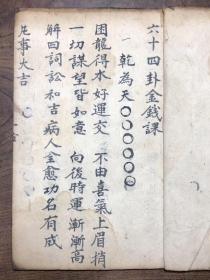 六十四卦金錢課
一乾為天〇〇〇〇〇〇
困龍得水好運交 不由喜氣上眉梢
一切謀望皆如意 向後時運漸漸高
解曰詞訟和吉病人全愈功名有成
凡事大吉